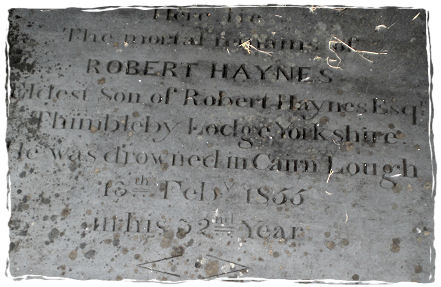 Here lie
The mortal remains of
ROBERT HAYNES
Eldest Son of Robert Haynes Esqr
Thimbleby Lodge Yorkshire
He was drowned in Cairn Lough
13th Feby 1855
in his 32nd Year